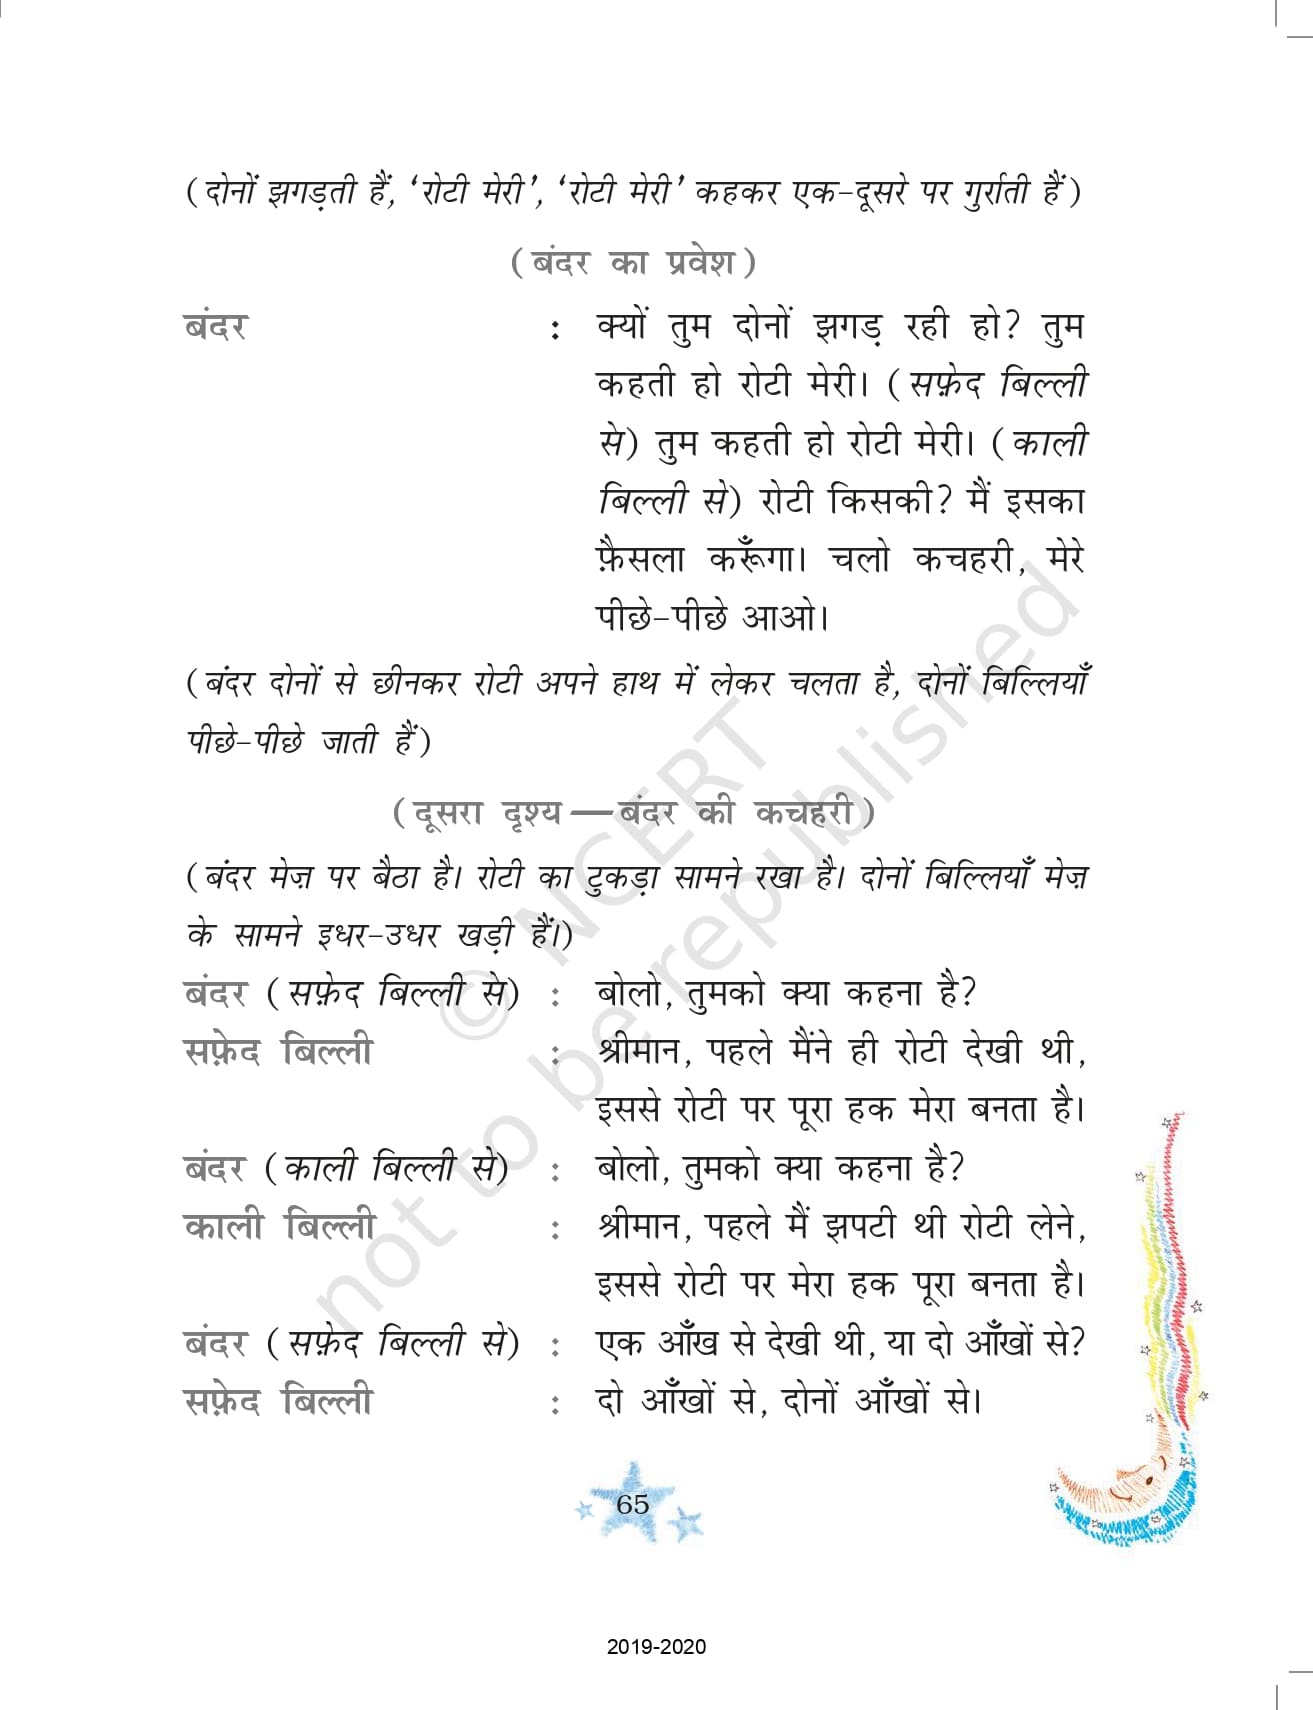 (दोनों झगड़ती हैं, ‘रोटी मेरी’, ‘रोटी मेरी’ कहकर एक-दूसरे पर गुर्राती हैं)
(बंदर का प्रवेश)
बंदर : क्यों तुम दोनों झगड़ रही हो? तुम
कहती हो रोटी मेरी। (सफ़ेद बिल्ली
से) तुम कहती हो रोटी मेरी। (काली
बिल्ली से) रोटी किसकी? मैं इसका
फ़ैसला करूँगा। चलो कचहरी, मेरे
पीछे-पीछे आओ।
(बंदर दोनों से छीनकर रोटी अपने हाथ में लेकर चलता है, दोनों बिल्लियाँ
पीछे-पीछे जाती हैं)
(दूसरा दृश्य—बंदर की कचहरी)
(बंदर मेज़ पर बैठा है। रोटी का टुकड़ा सामने रखा है। दोनों बिल्लियाँ मेज़
के सामने इधर-उधर खड़ी हैं।)
बंदर (सफ़ेद बिल्ली से) : बोलो, तुमको क्या कहना है?
सफ़ेद बिल्ली : श्रीमान, पहले मैंने ही रोटी देखी थी,
इससे रोटी पर पूरा हक मेरा बनता है।
बंदर (काली बिल्ली से) : बोलो, तुमको क्या कहना है?
काली बिल्ली : श्रीमान, पहले मैं झपटी थी रोटी लेने,
इससे रोटी पर मेरा हक पूरा बनता है।
बंदर (सफ़ेद बिल्ली से) : एक आँख से देखी थी, या दो आँखों से?
सफ़ेद बिल्ली : दो आँखों से, दोनों आँखों से।
© NCERT
not to be republished
65
2019-2020